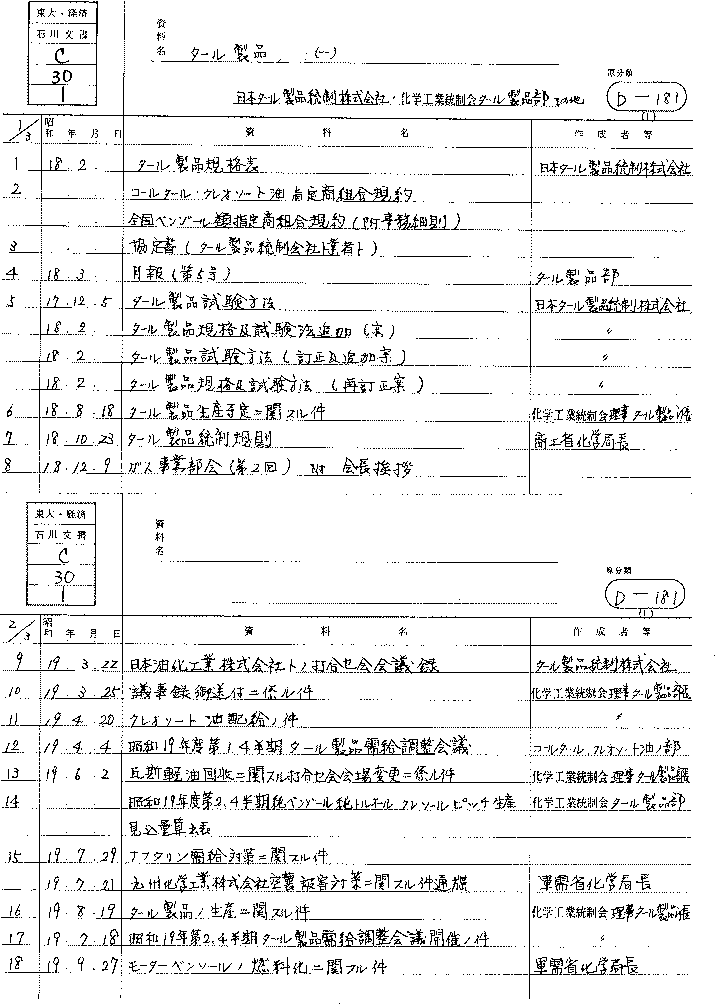 東大・経済
石川文書
C
30
1
資料名 タール製品 (一)
日本タール製品統制株式会社・化学工業統制会タール製品部 其の他
原分類
D-181
(1)
1/3 昭和 年 月 日 資料名 作成者等
1 18.2. タール製品規格表 日本タール製品統制株式会社
2 コールタール・クレオソート油指定商組合規約
全国ベンゾール類指定商組合規約(附事務細則)
3 協定書(タール製品統制会社ト業者ト)
4 18.3. 月報(第5号) タール製品部
5 17.12.5 タール製品試験方法 日本タール製品統制株式会社
18.2 タール製品規格及試験法追加(案) 〃
18.2 タール製品試験方法(訂正及追加案) 〃
18.2 タール製品規格及試験方法(再訂正案) 〃
6 18.8.18 タール製品生産予定ニ関スル件 化学工業統制会理事タール製品部長
7 18.10.23 タール製品統制規則 商工省化学局長
8 18.12.9 ガス事業部会(第2回) 会長挨拶
東大・経済
石川文書
C
30
1
資料名
原分類
D-181
(1)
2/3 昭和 年 月 日 資料名 作成者等
9 19.3.22 日本油化工業株式会社トノ打合セ会会議録 タール製品統制株式会社
10 19.3.25 議事録御送付ニ係ル件 化学工業統制会理事タール製品部長
11 19.4.20 クレオソート油配給ノ件 〃
12 19.4.4 昭和19年度第1.4半期タール製品需給調整会議 コールタール、クレオソート油ノ部
13 19.6.2 瓦斯軽油回収ニ関スル打合セ会会場変更ニ係ル件 化学工業統制会理事タール製品部長
14 昭和19年度第2.4半期純ベンゾール純トルオール クレゾールピッチ生産 化学工業統制会タール製品部
見込量算出表
15 19.7.29 ナフタリン需給対策ニ関スル件
19.7.21 九州化学工業株式会社空襲被害対策ニ関スル件通牒 軍需省化学局長
16 19.8.19 タール製品ノ生産ニ関スル件 化学工業統制会理事タール製品部長
17 19.7.18 昭和19年第2.4半期タール製品需給調整会議開催ノ件 〃
18 19.9.27 モーターベンゾールノ燃料化ニ関スル件 軍需省化学局長